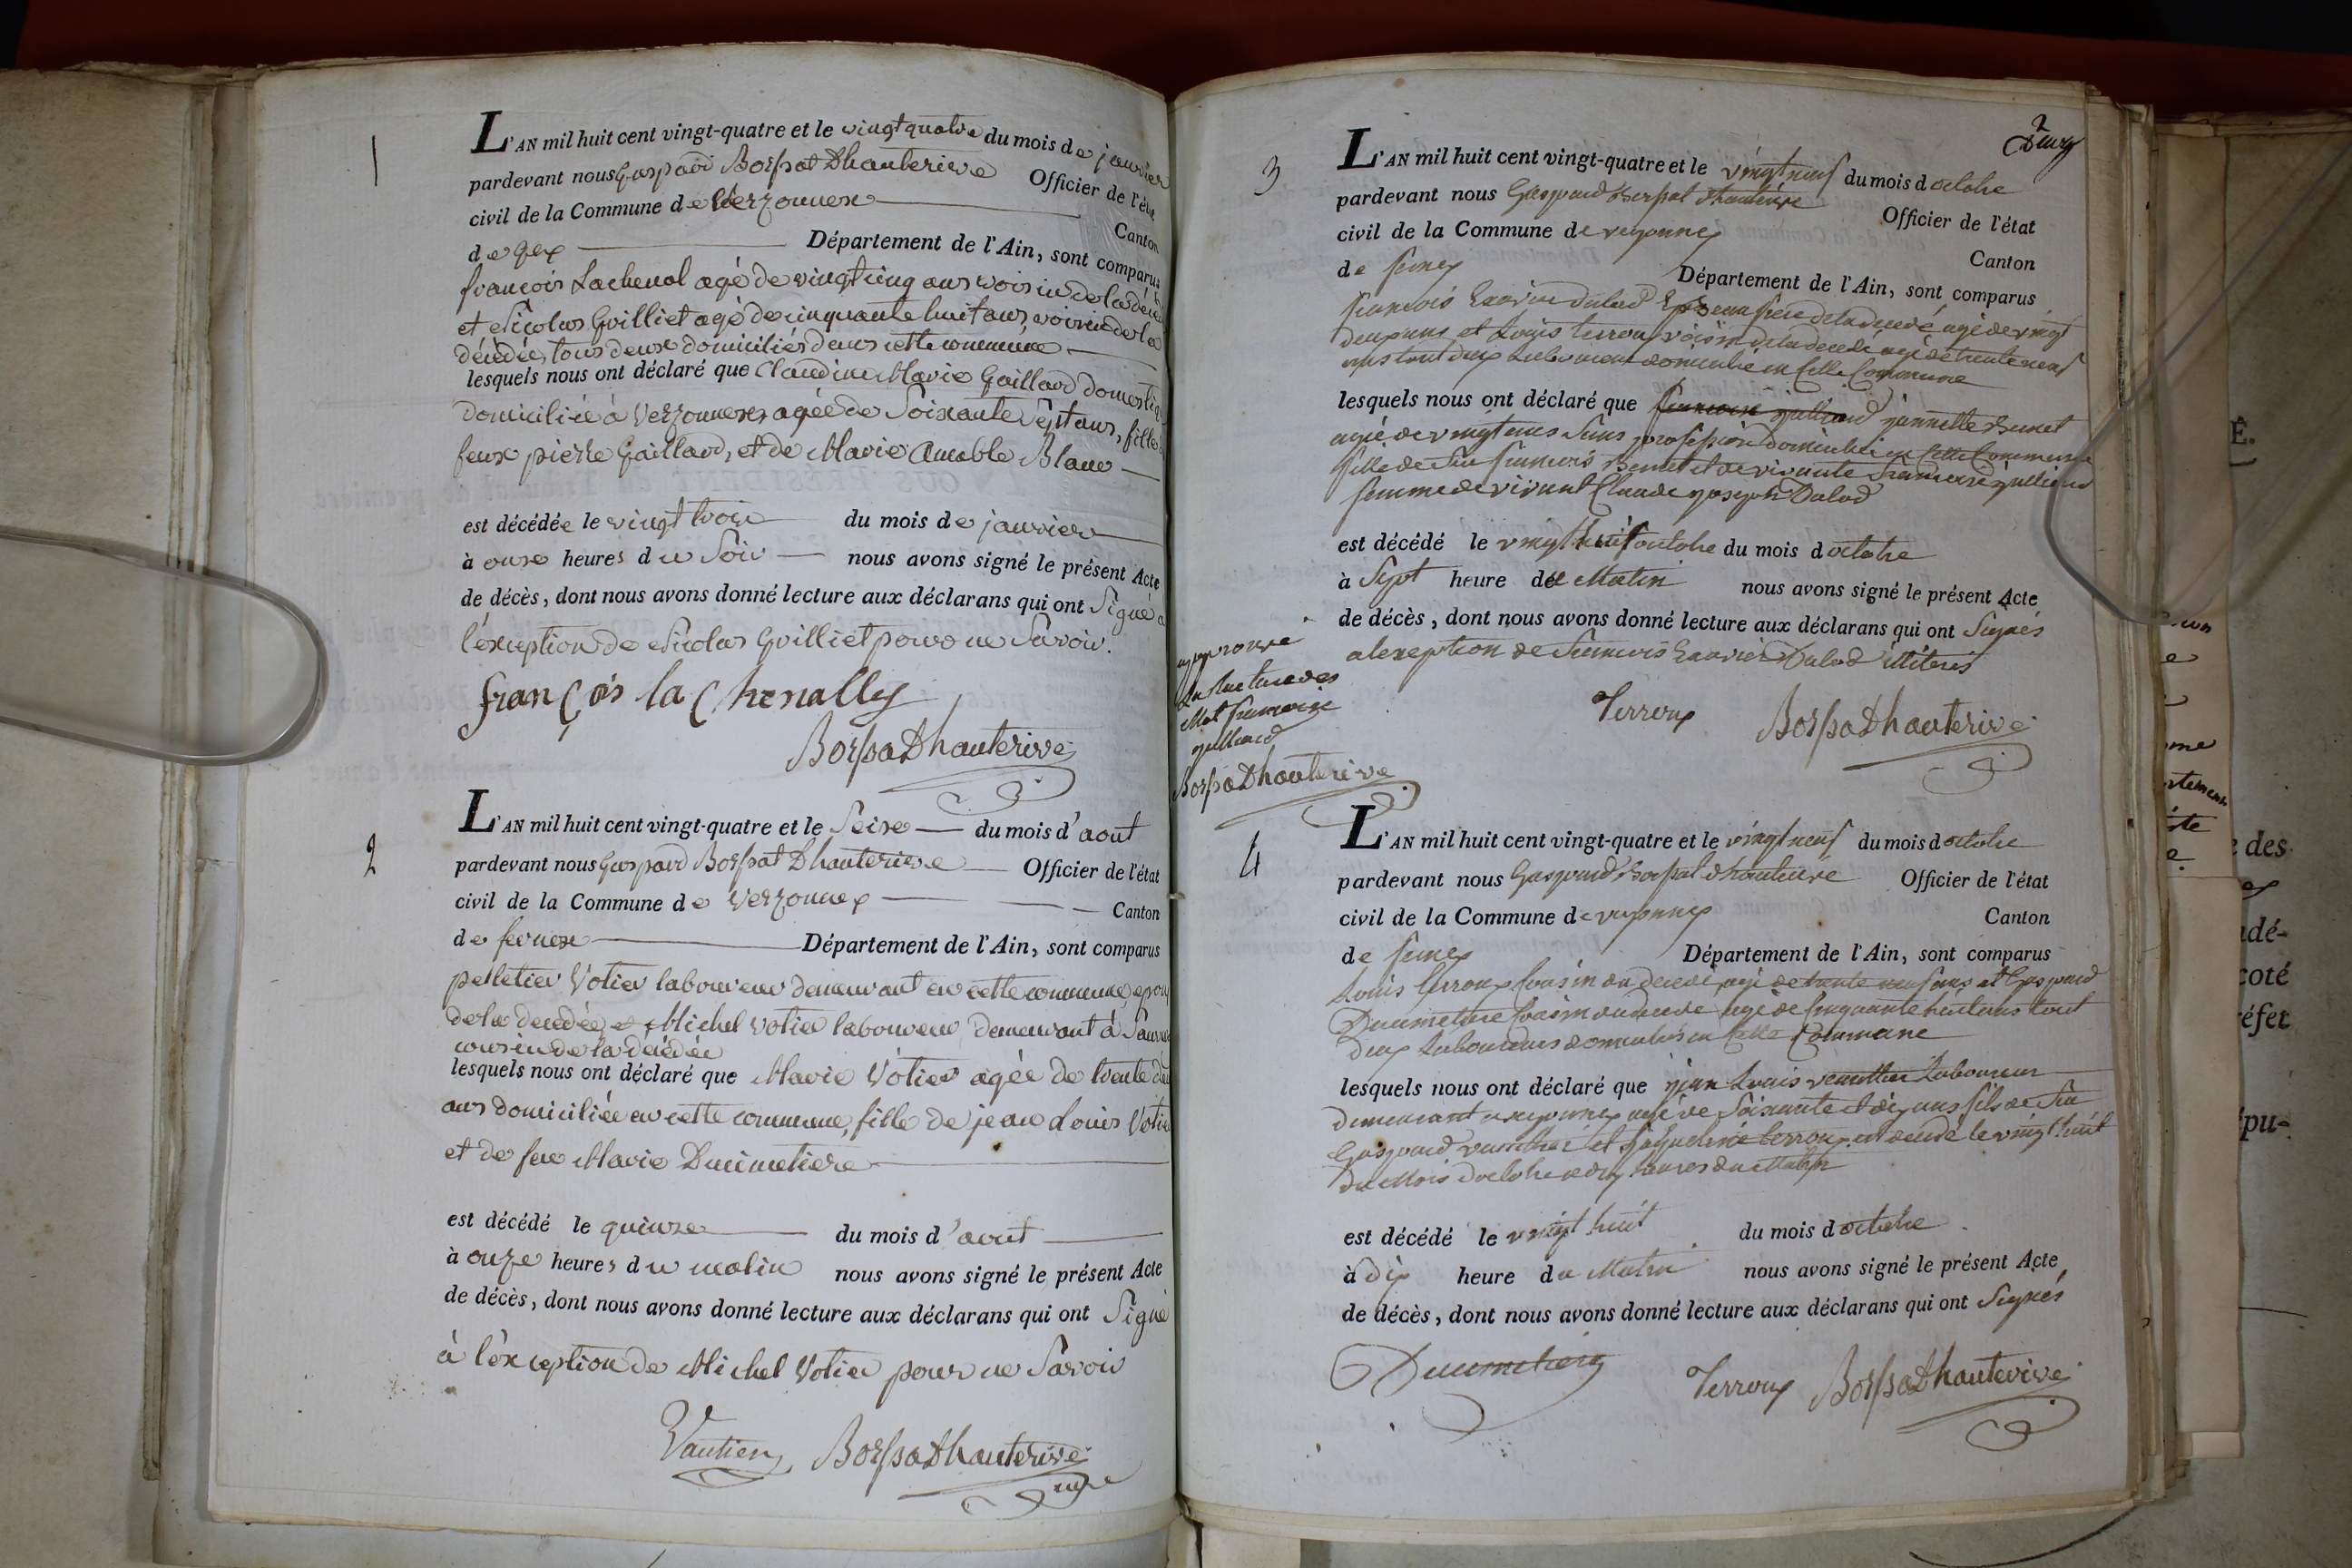 1
L'AN mil huit cent vingt-quatre et le vingt quatre du mois de janvier
pardevant nous Gaspard Bossat Dhauterive Officier de l'état
civil de la Commune de Verzonnex Canton
de Gex Département de l'Ain, sont comparus
françois Lachenal agé de vingt cinq ans voisin de la décédée
et Nicolas Guilliet agé de cinquante huit ans voisin de la
décédée, tous deux domiciliés dans cette commune
lesquels nous ont déclaré que Claudine Marie Gaillard domestique
domiciliée à Verzonnex, agée de Soixante Sept ans, fille
feux pierre Gaillard, et de Marie Amable Blanc
est décédée le vingt trois du mois de janvier
à onze heures du Soir nous avons signé le présent Acte
de décès, dont nous avons donné lecture aux déclarans qui ont Signé à
l'éxception de Nicolas Guilliet pour ne Savoir.
françois la Chenally
BossaDhauterive
2
L'AN mil huit cent vingt-quatre et le Seize du mois d'aout
pardevant nous Gaspard Bossat Dhauterive Officier de l'état
civil de la Commune de Verzonnex Canton
de fernex Département de l'Ain, sont comparus
pelletier Votier laboureur demeurant en cette commune, epoux
de la décédée et Michel Votier laboureur demeurant à
cousin de la décédée
lesquels nous ont déclaré que Marie Votier agée de trente deux
ans domiciliée en cette commune, fille de jean Louis Votier
et de feue Marie Ducimetiere
est décédé le quinze du mois d'aout
à onze heures du matin nous avons signé le présent Acte
de décès, dont nous avons donné lecture aux déclarans qui ont Signé
à l'éxception de Michel Votier pour ne Savoir
Vautier BossaDhauterive
2
Deux
3
L'AN mil huit cent vingt-quatre et le vingt neuf du mois d octobre
pardevant nous Gaspard Bossat dhauterive Officier de l'état
civil de la Commune de vezonnex Canton
de fernex Département de l'Ain, sont comparus
francois Xavier Dalod Beau frere de la decedé agé de vingt
deux ans et Louis terroux voisin de la decedé agé de trente neuf
ans tout deux Laboureur domicilié en Cette Commune
lesquels nous ont déclaré que francoise julliard jannette Benet
agée de vingt ans Sans profession domicilié en Cette Commune
fille de feu francois Benet et de vivante francoise julliard
femme de vivant Claude joseph Dalod
est décédé le vingt huit octobre du mois d octobre
à Sept heure du Matin nous avons signé le présent Acte
de décès, dont nous avons donné lecture aux déclarans qui ont Signés
alexeption de francois Xavier Dalod illiteris
Terroux BossaDhauterive
approuvé
La Rature des
Mot francoise
julliard
BossaDhauterive
4
L'AN mil huit cent vingt-quatre et le vingt neuf du mois d octobre
pardevant nous Gaspard Bossat dhauterive Officier de l'état
civil de la Commune de vezonnex Canton
de fernex Département de l'Ain, sont comparus
Louis terroux Cousin du decedé agé de trente neuf ans et Gaspard
Ducimetiere Cousin du decedé agé de Cinquante huit ans tout
deux Laboureurs domiciliés en Cette Commune
lesquels nous ont déclaré que jean Louis vauthier Laboureur
demeurant a vezonnex agé de Soixante et dix ans fils de feu
Gaspard vauthier et jaqueline terroux est decedé le vingt huit
du Mois d octobre a dix heures du Matin
est décédé le vingt huit du mois d octobre
à dix heure du Matin nous avons signé le présent Acte
de décès, dont nous avons donné lecture aux déclarans qui ont Signés
Ducimetiere Terroux BossaDhauterive